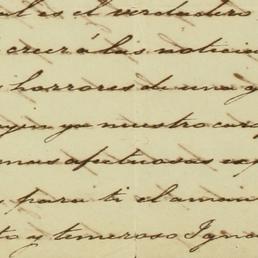 es el verdadero
creer á las noticia
horrores de una g
ya nuestro car
mas afectuosas esp
para ti el aman
to y temeroso Igna